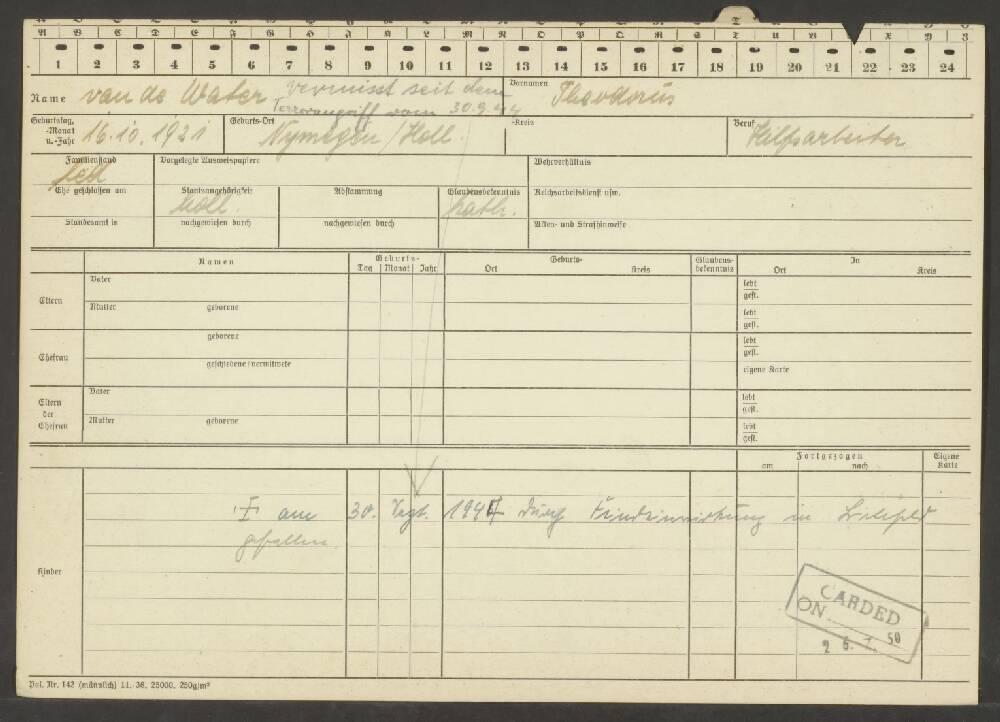 A B C D E F G H J K L M N O P Q R S T U V W X Y Z
1 2 3 4 5 6 7 8 9 10 11 12 13 14 15 16 17 18 19 20 21 22 23 24
Name van de Water vermisst seit dem Terrorangriff vom 30.9.44 Vornamen Theodorus
Geburtstag, -Monat u.-Jahr 16.10.1921 Geburts-Ort Nymegen/Holl. -Kreis Beruf Hilfsarbeiter
Familienstand led Vorgelegte Ausweispapiere Wehrverhältnis
Ehe geschlossen am Staatsangehörigkeit Holl. Abstammung Glaubensbekenntnis kath. Reichsarbeitsdienst usw.
Standesamt in nachgewiesen durch nachgewiesen durch Akten- und Strafhinweise
Namen Geburts- Geburts- Glaubens-bekenntnis In
Tag Monat Jahr Ort Kreis Ort Kreis
Eltern Vater lebt gest.
Mutter geborene lebt gest.
Ehefrau geborene lebt gest.
geschiedene/verwitwete eigene Karte
Eltern der Ehefrau Vater lebt gest.
Mutter geborene lebt gest.
Fortgezogen Eigene Karte
am nach
am 30. Sept. 1944 durch Feindeinwirkung in Bielefeld
gefallen.
Kinder
CARDED
ON
2 6. 1. 50
Pol. Nr. 142 (männlich) 11.38. 25000. 250g/m²